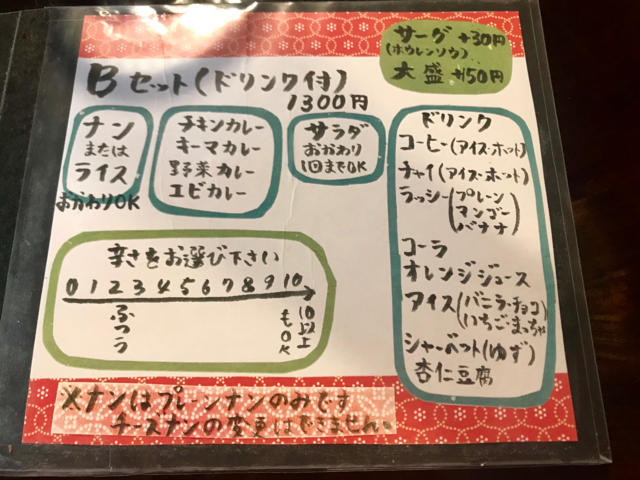 サーグ +30円
(ホウレンソウ)
大盛 +150円
Bセット(ドリンク付)
1300円
ナン
または
ライス
おかわりOK
チキンカレー
キーマカレー
野菜カレー
エビカレー
サラダ
おかわり
1回までOK
ドリンク
コーヒー(アイス・ホット)
チャイ(アイス・ホット)
ラッシー(プレーン
マンゴー
バナナ)
コーラ
オレンジジュース
アイス(バニラ・チョコ
いちご・まっちゃ)
シャーベット(ゆず)
杏仁豆腐
辛さをお選び下さい
0 1 2 3 4 5 6 7 8 9 10
ふつう
10以上
もOK
※ナンはプレーンナンのみです
チーズナンの変更はできません。